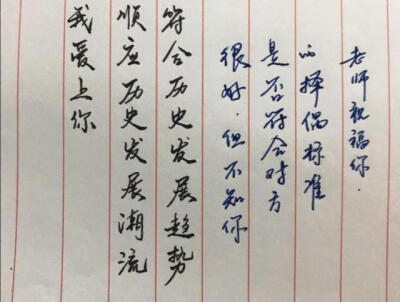 我爱上你
顺应历史发展潮流
符合历史发展趋势
很好.但不知你
是否符合对方
的择偶标准
老师祝福你.